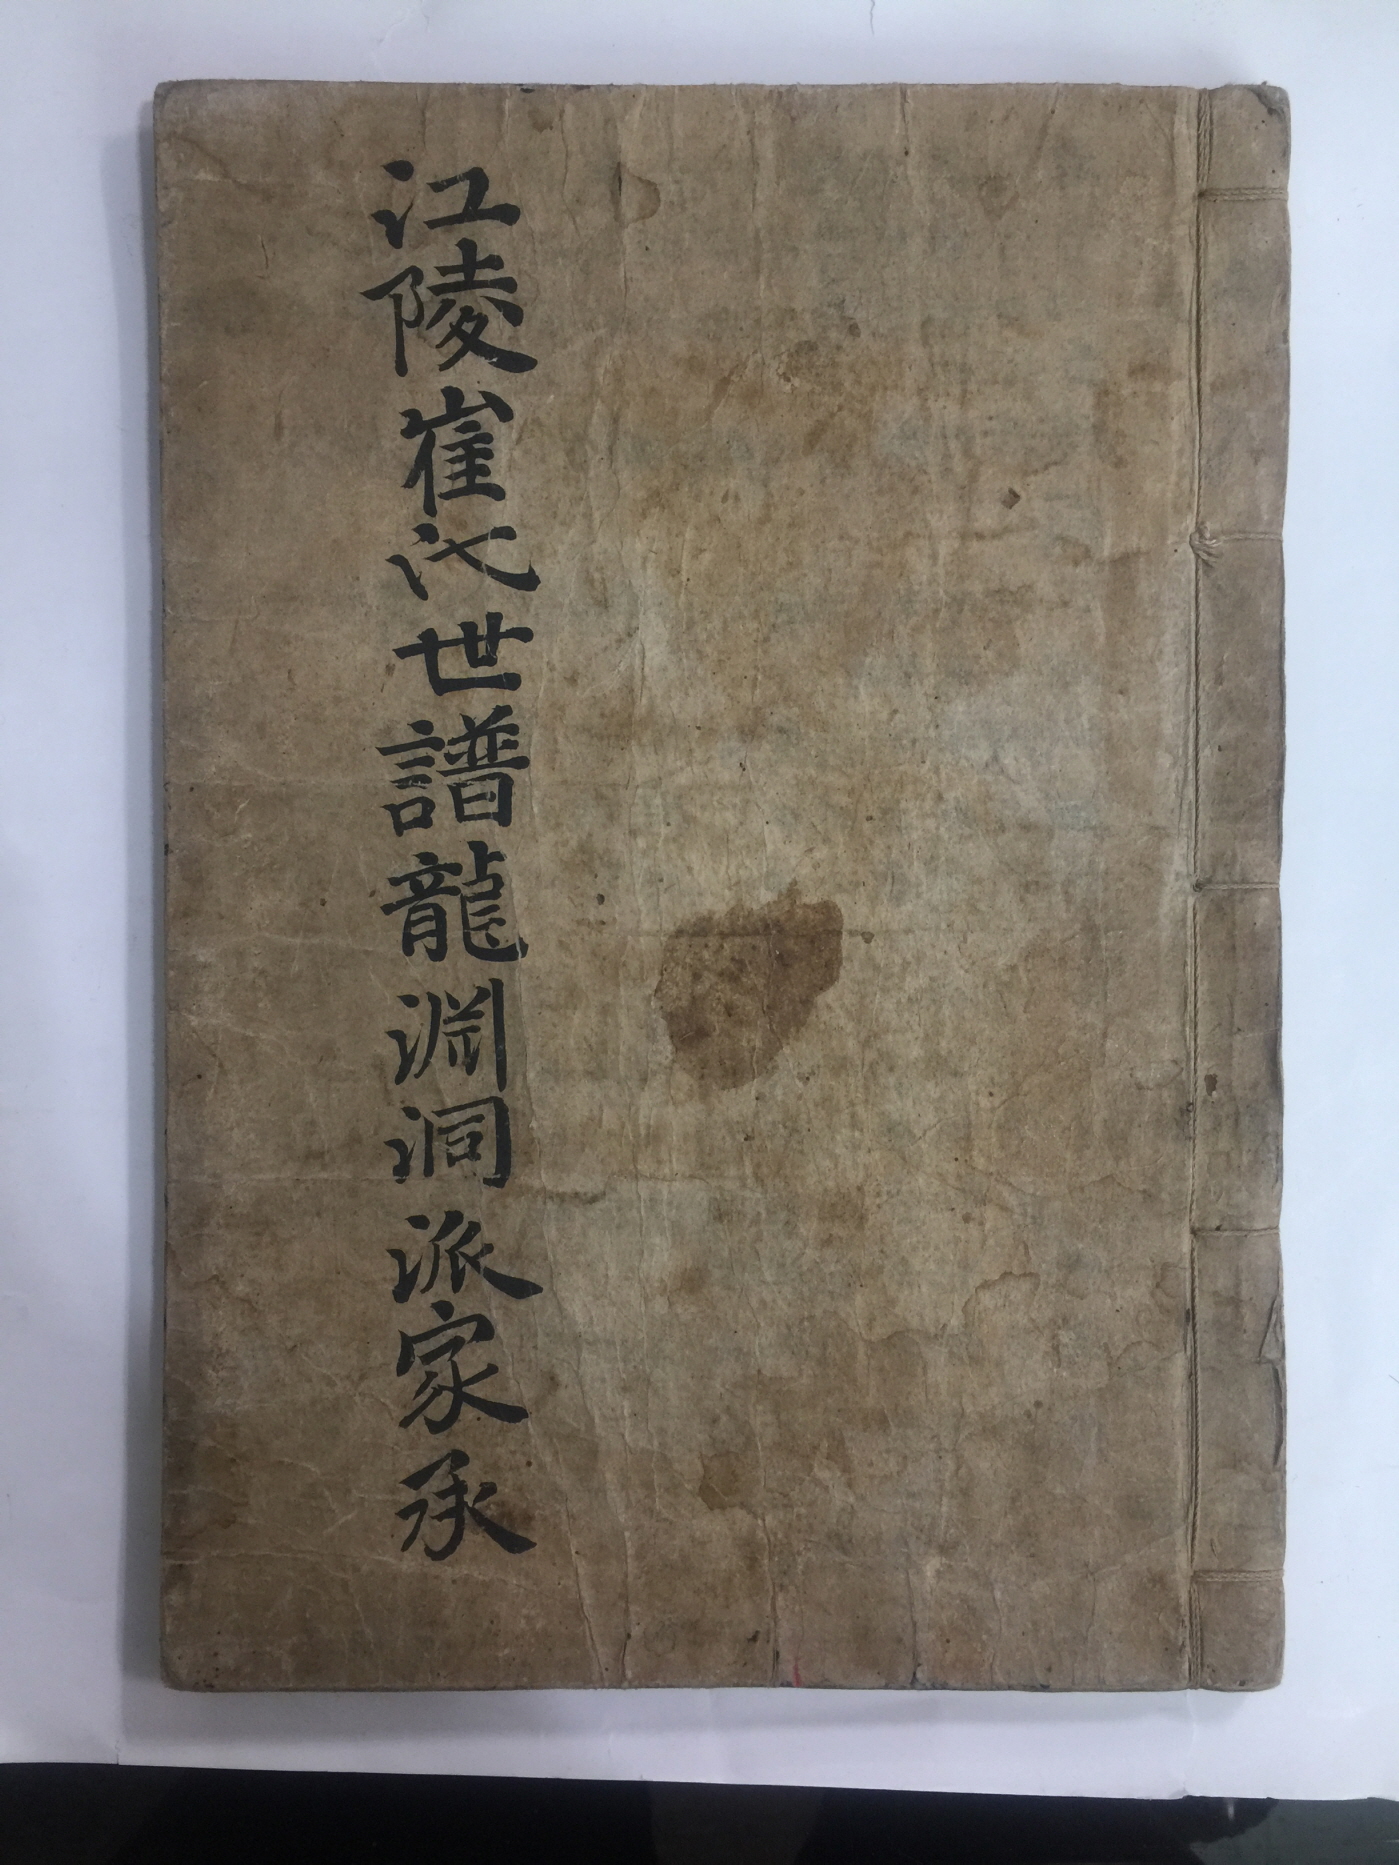 江陵崔氏世譜龍淵洞派家承